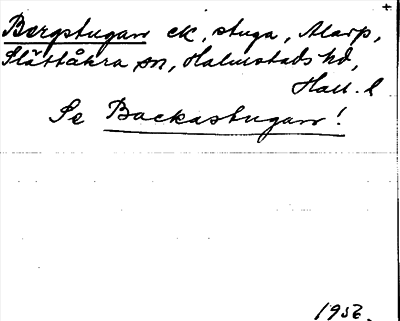 Bergstugan ek, stuga, Alarp,
Slättåkra sn, Halmstads hd,
Hall. l
Se Backastugan!
1956.